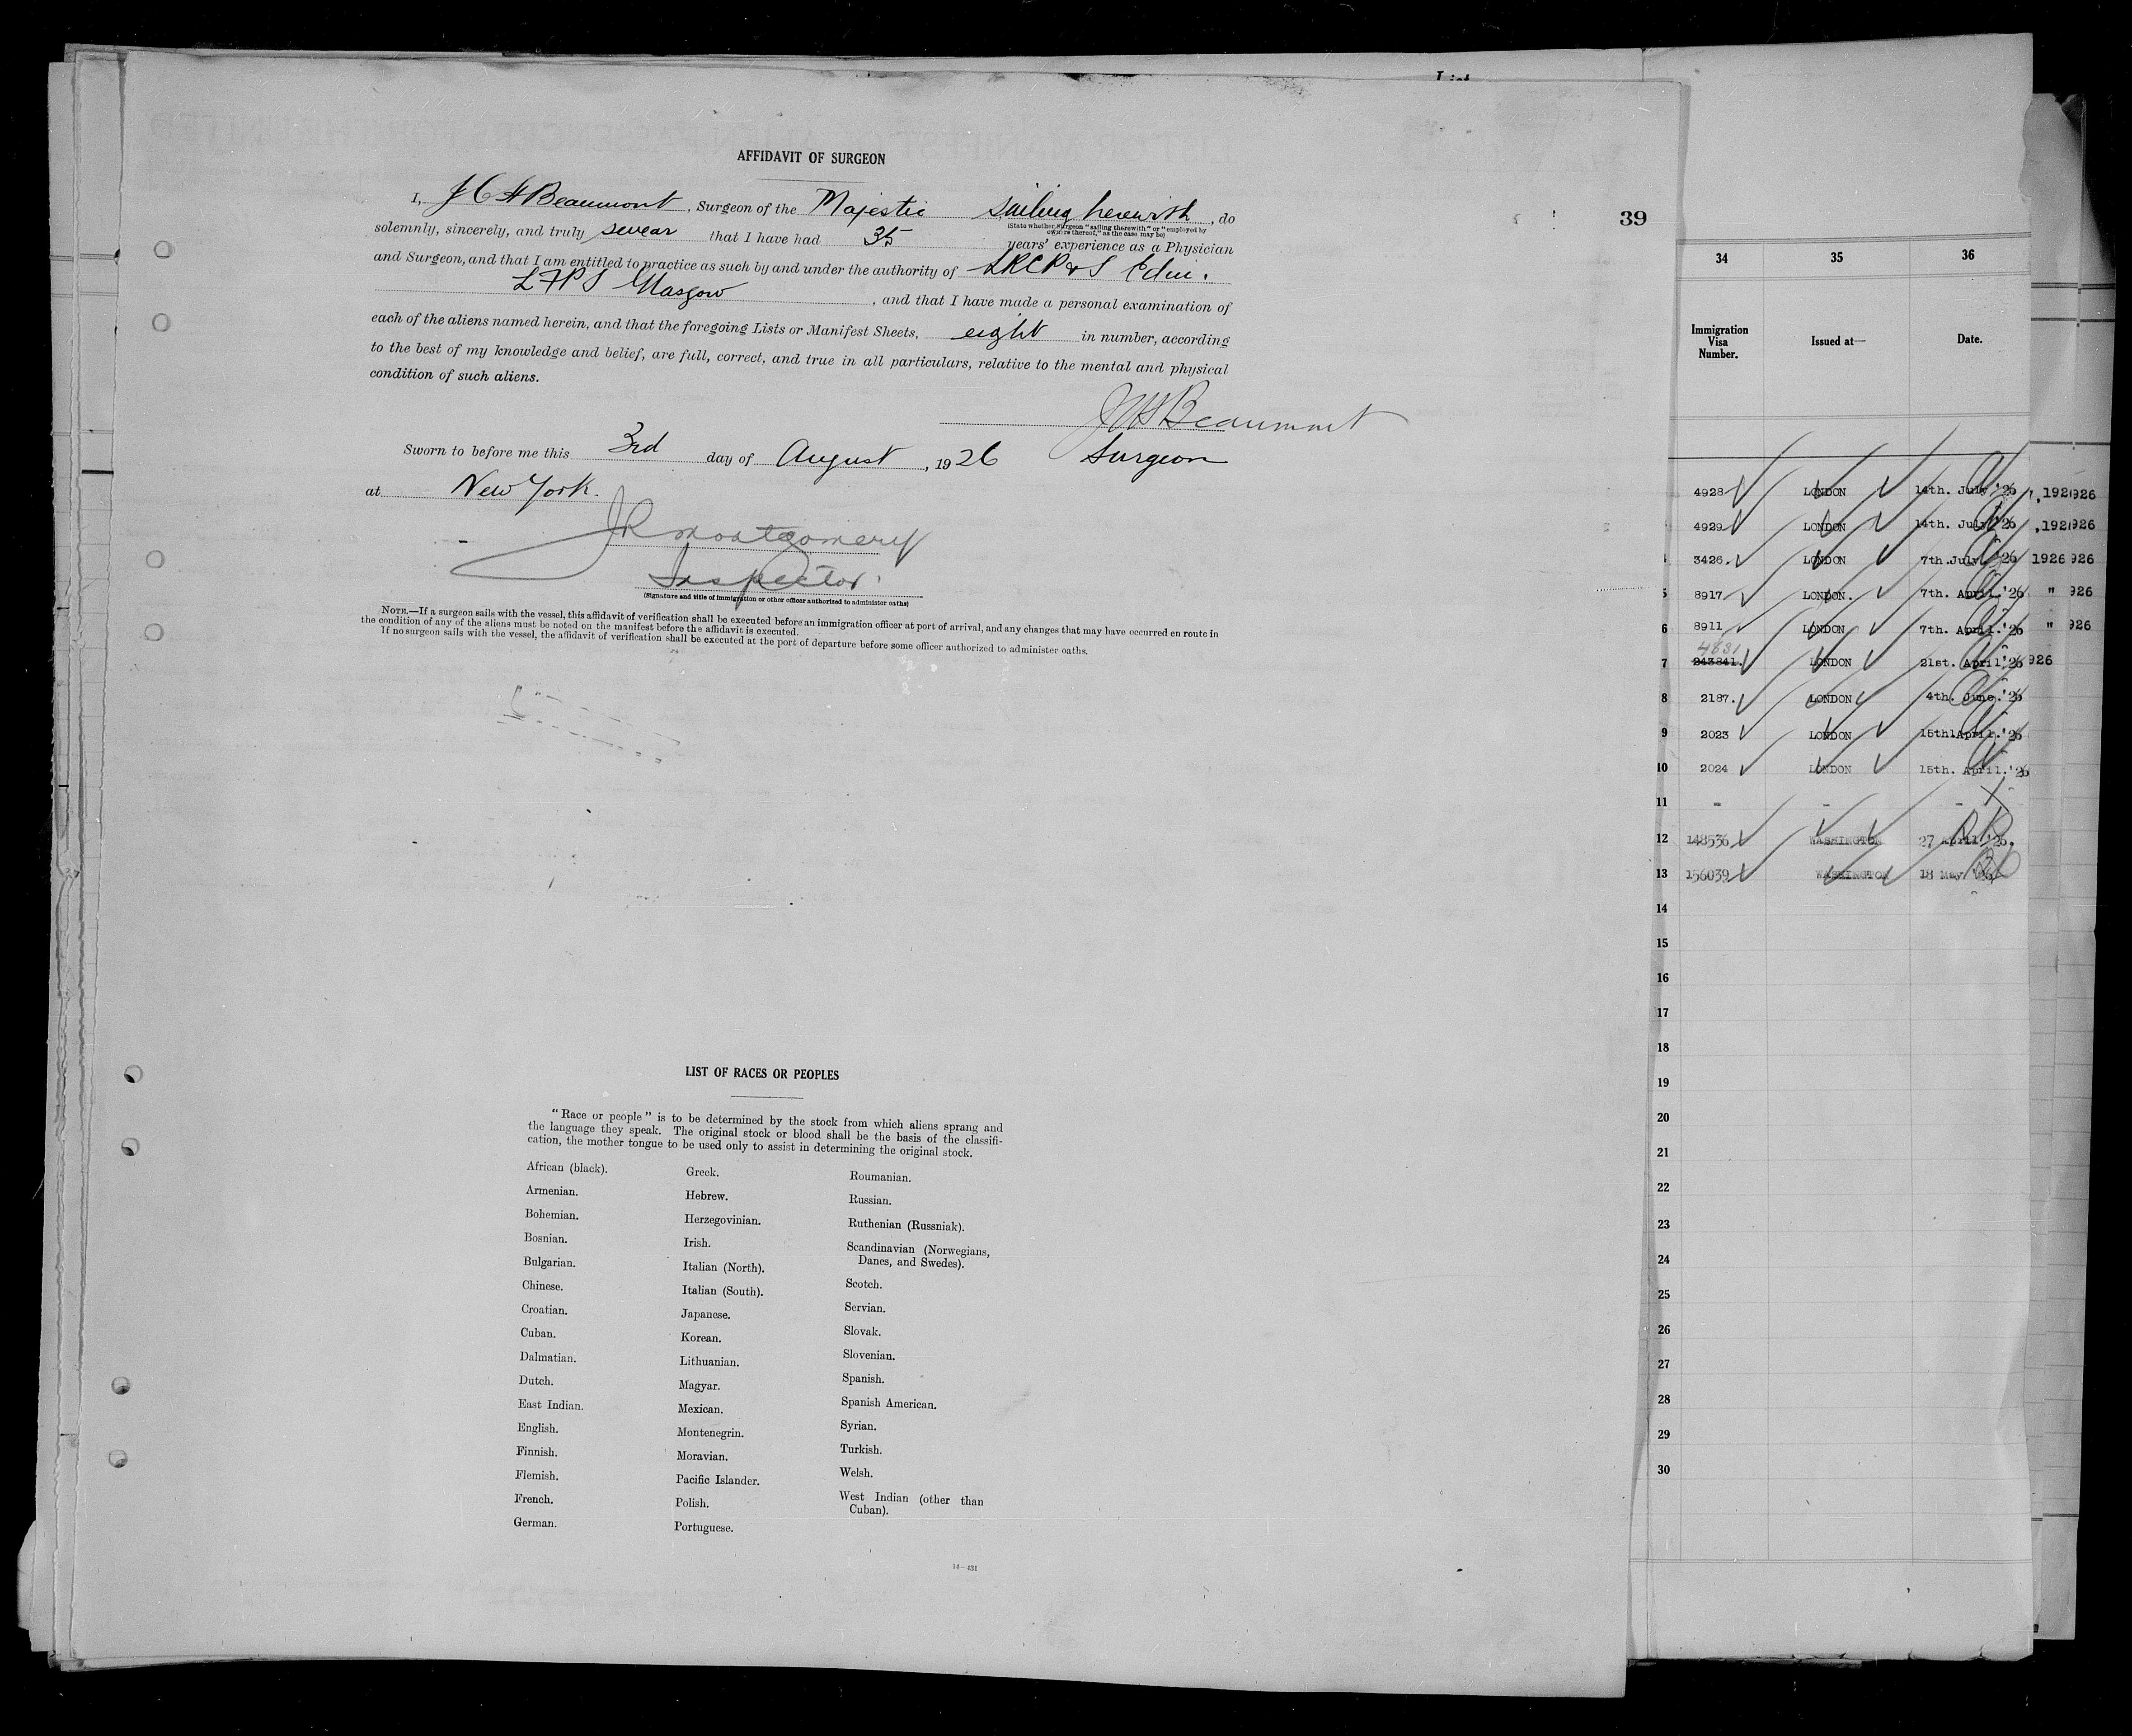 AFFIDAVIT OF SURGEON
I, J C H Beaumont, Surgeon of the Majestic sailing herewith, do
(State whether surgeon "sailing therewith" or "employed by
owners thereof," as the case may be)
solemnly, sincerely, and truly swear that I have had 35 years' experience as a Physician
and Surgeon, and that I am entitled to practice as such by and under the authority of LRCP & S Edin.
LFPS Glasgow, and that I have made a personal examination of
each of the aliens named herein, and that the foregoing Lists or Manifest Sheets, eight in number, according
to the best of my knowledge and belief, are full, correct, and true in all particulars, relative to the mental and physical
condition of such aliens.
JCH Beaumont
Sworn to before me this 3rd day of August, 1926 Surgeon
at New York.
JR Montgomery
Inspector
(Signature and title of immigration or other officer authorized to administer oaths)
NOTE.—If a surgeon sails with the vessel, this affidavit of verification shall be executed before an immigration officer at port of arrival, and any changes that may have occurred en route in
the condition of any of the aliens must be noted on the manifest before the affidavit is executed.
If no surgeon sails with the vessel, the affidavit of verification shall be executed at the port of departure before some officer authorized to administer oaths.
LIST OF RACES OR PEOPLES
"Race or people" is to be determined by the stock from which aliens sprang and
the language they speak. The original stock or blood shall be the basis of the classifi-
cation, the mother tongue to be used only to assist in determining the original stock.
African (black).
Armenian.
Bohemian.
Bosnian.
Bulgarian.
Chinese.
Croatian.
Cuban.
Dalmatian.
Dutch.
East Indian.
English.
Finnish.
Flemish.
French.
German.
Greek.
Hebrew.
Herzegovinian.
Irish.
Italian (North).
Italian (South).
Japanese.
Korean.
Lithuanian.
Magyar.
Mexican.
Montenegrin.
Moravian.
Pacific Islander.
Polish.
Portuguese.
Roumanian.
Russian.
Ruthenian (Russniak).
Scandinavian (Norwegians,
Danes, and Swedes).
Scotch.
Servian.
Slovak.
Slovenian.
Spanish.
Spanish American.
Syrian.
Turkish.
Welsh.
West Indian (other than
Cuban).
14—431
39
34 35 36
Immigration
Visa
Number.
Issued at—
Date.
4928 LONDON 14th. July.'26 ,1926 926
4929 LONDON 14th. July.'26 ,1926 926
3426. LONDON 7th. July.'26 1926 926
5 8917 LONDON. 7th. April.'26 " 926
6 8911 LONDON 7th. April.'26 " 926
4831
7 243841. LONDON 21st. April.'26 926
8 2187. LONDON 4th. June.'26
9 2023 LONDON 15th April.'26
10 2024 LONDON 15th. April.'26
11 - - -
12 148536 WASHINGTON 27 April '26.
13 156039 WASHINGTON 18 May '26
14
15
16
17
18
19
20
21
22
23
24
25
26
27
28
29
30